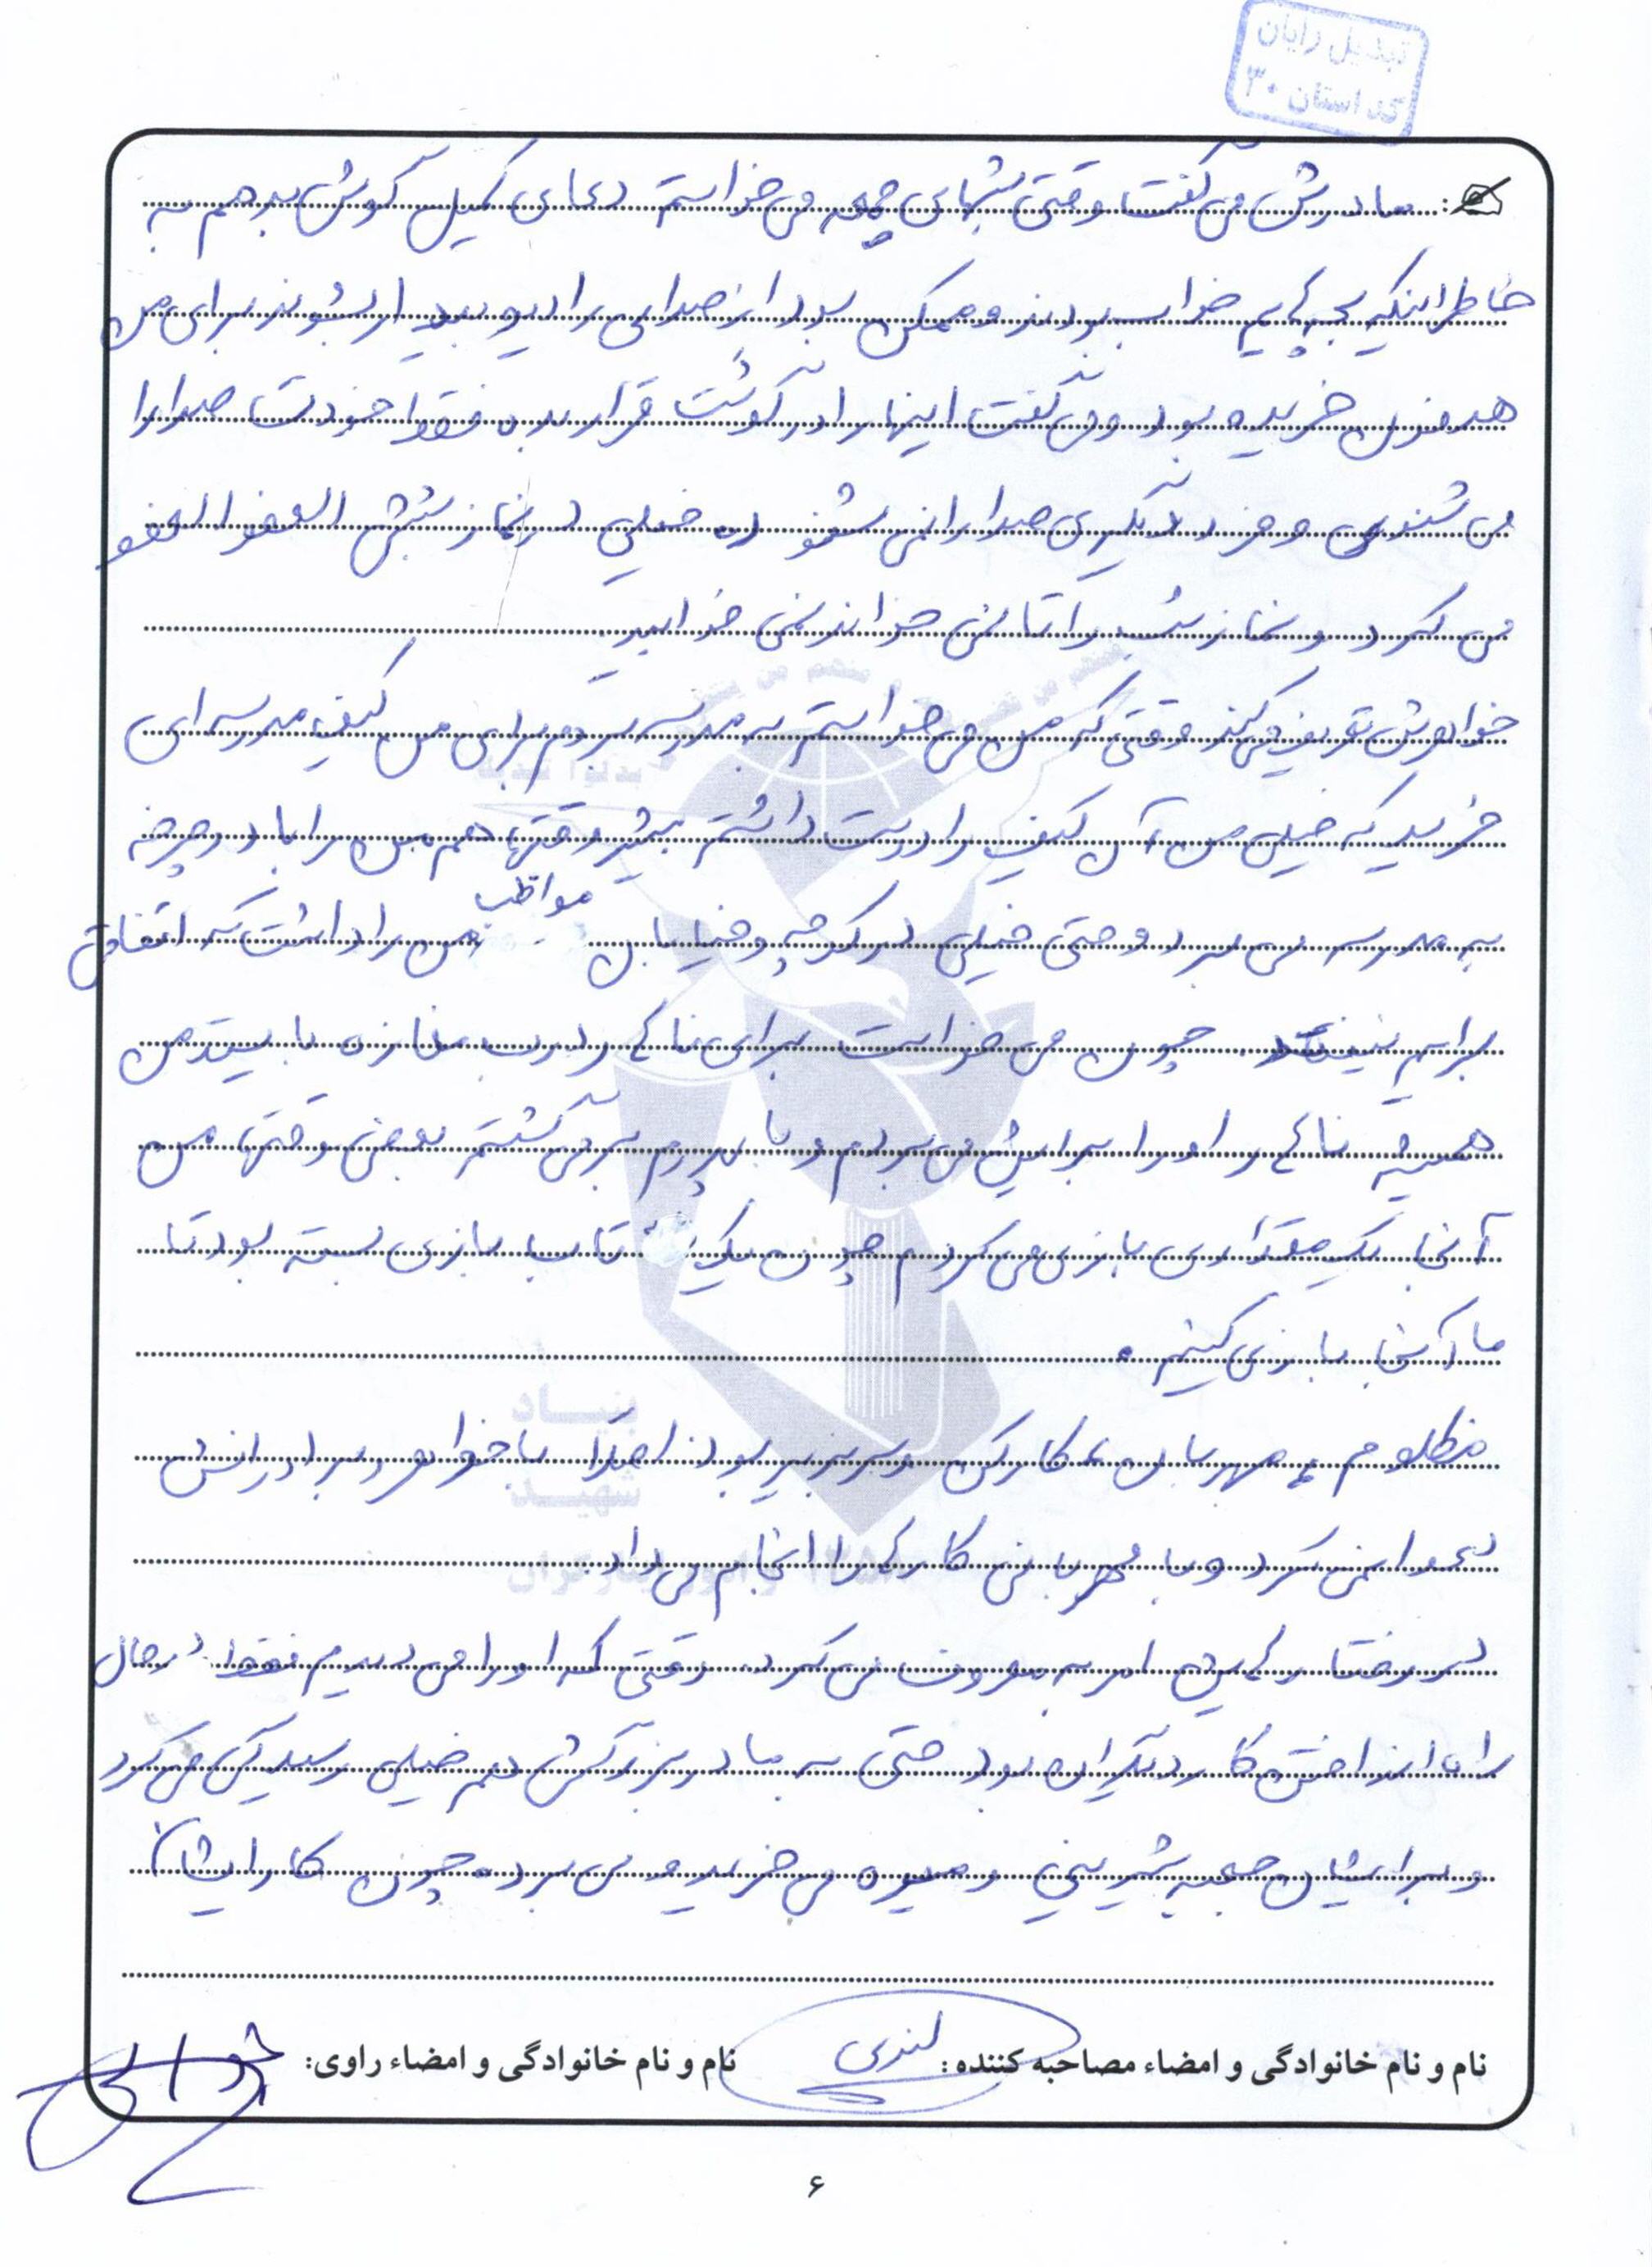 تبدیل رایان
کد استان ۳۰
مادرش می گفت وقتی شبهای جمعه می خواستم دعای کمیل گوش بدهم به
خاطر اینکه بچه هایم خواب بودند و ممکن بود از صدای رادیو بیدار بشوند برای من
هدفون خریده بود و می گفت اینها را در گوشت قرار بده فقط خودت صدا را
می شنوی و فرد دیگری صدا را نمی شنود خیلی در نماز شبش العفو العفو
می کرد و نماز شب را تا نمی خواند نمی خوابید.
خواهرش تعریف می کند وقتی که من می خواستم به مدرسه بروم برای من کیف مدرسه ای
خرید که خیلی من آن کیف را دوست داشتم بیشتر وقتها هم من را با دوچرخه
به مدرسه می برد و حتی خیلی در کوچه و خیابان مواظب من را داشت که اتفاقی
برایم نیفتد. چون می خواست برای ناهار درب مغازه بایستد من
همیشه ناهار او را برایش می بردم و با پدرم بر می گشتم بعضی وقتها من
آنجا یک مقداری بازی می کردم چون یک تاب بازی بسته بود تا
ما آنجا بازی کنیم.
مظلوم، مهربان، کارکن و سربزیر بود اصلاً با خواهر و برادرانش
دعوا نمی کرد و با مهربانی کارها را انجام می داد.
در رفتارهایش امر به معروف می کرد. وقتی که او را می دیدیم فقط در حال
راه انداختن کار دیگران بود حتی به مادر بزرگش هم خیلی رسیدگی می کرد
و برایشان جعبه شیرینی و میوه می خرید و می برد. چون کار ایشان
نام و نام خانوادگی و امضاء مصاحبه کننده: نام و نام خانوادگی و امضاء راوی:
بنیاد
شهید
۶